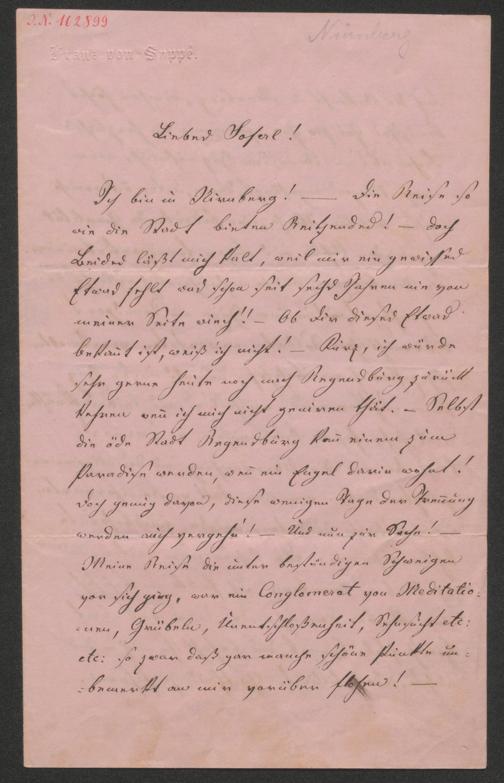 J.N. 162899
Nürnberg
Franz von Suppé.
Liebes Soferl!
Ich bin in Nürnberg! — Die Reise so
wie die Stadt bieten Reitzendes! — doch
Beides läßt mich kalt, weil mir ein gewisses
Etwas fehlt das schon seit sechs Jahren nie von
meiner Seite wich!! — Ob dir dieses Etwas
bekannt ist, weiß ich nicht! — Kurz, ich würde
sehr gerne heute noch nach Regensburg zurück
kehren wenn ich mich nicht geniren thät. — Selbst
die öde Stadt Regensburg kann einem zum
Paradise werden, wenn ein Engel darin wohnt!
Doch genug davon, diese wenigen Tage der Trennung
werden auch vergehn! — Und nun zur Sache! —
Meine Reise die unter beständigen Schweigen
vor sich ging, war ein Conglomerat von Meditatio-
nen, Grübeln, Unentschloßenheit, Sehnsucht etc:
etc: so zwar daß gar manche schöne Punkte un-
-bemerkt an mir vorüber flohen! —